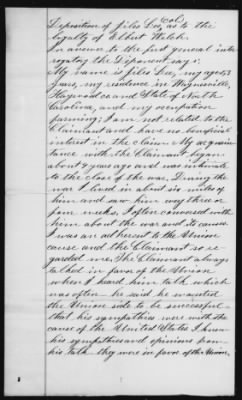 Deposition of Giles Lee, (Col) as to the
loyalty of Elbert Welch.
In answer to the first general inter-
rogatory the Deponent says:
My name is Giles Lee, my age 53
years, my residence in Waynesville,
Haywood co. and State of North
Carolina, and my occupation
farming; I am not related to the
Claimant and have no beneficial
interest in the claim. My acquain
tance with the Claimant began
about years ago and was intimate
to the close of the war. During the
war I lived in about six miles of
him and saw him every three or
four weeks, I often conversed with
him about the war and its causes.
I was an adherent to the Union
cause and the Claimant so re
garded me. The Claimant always
talked in favor of the Union
when I heard him talk which
was often - he said he wanted
the Union side to be successful -
that his sympathies were with the
cause of the United States I knew
his sympathies and opinions from
his talk - they were in favor of the Union,